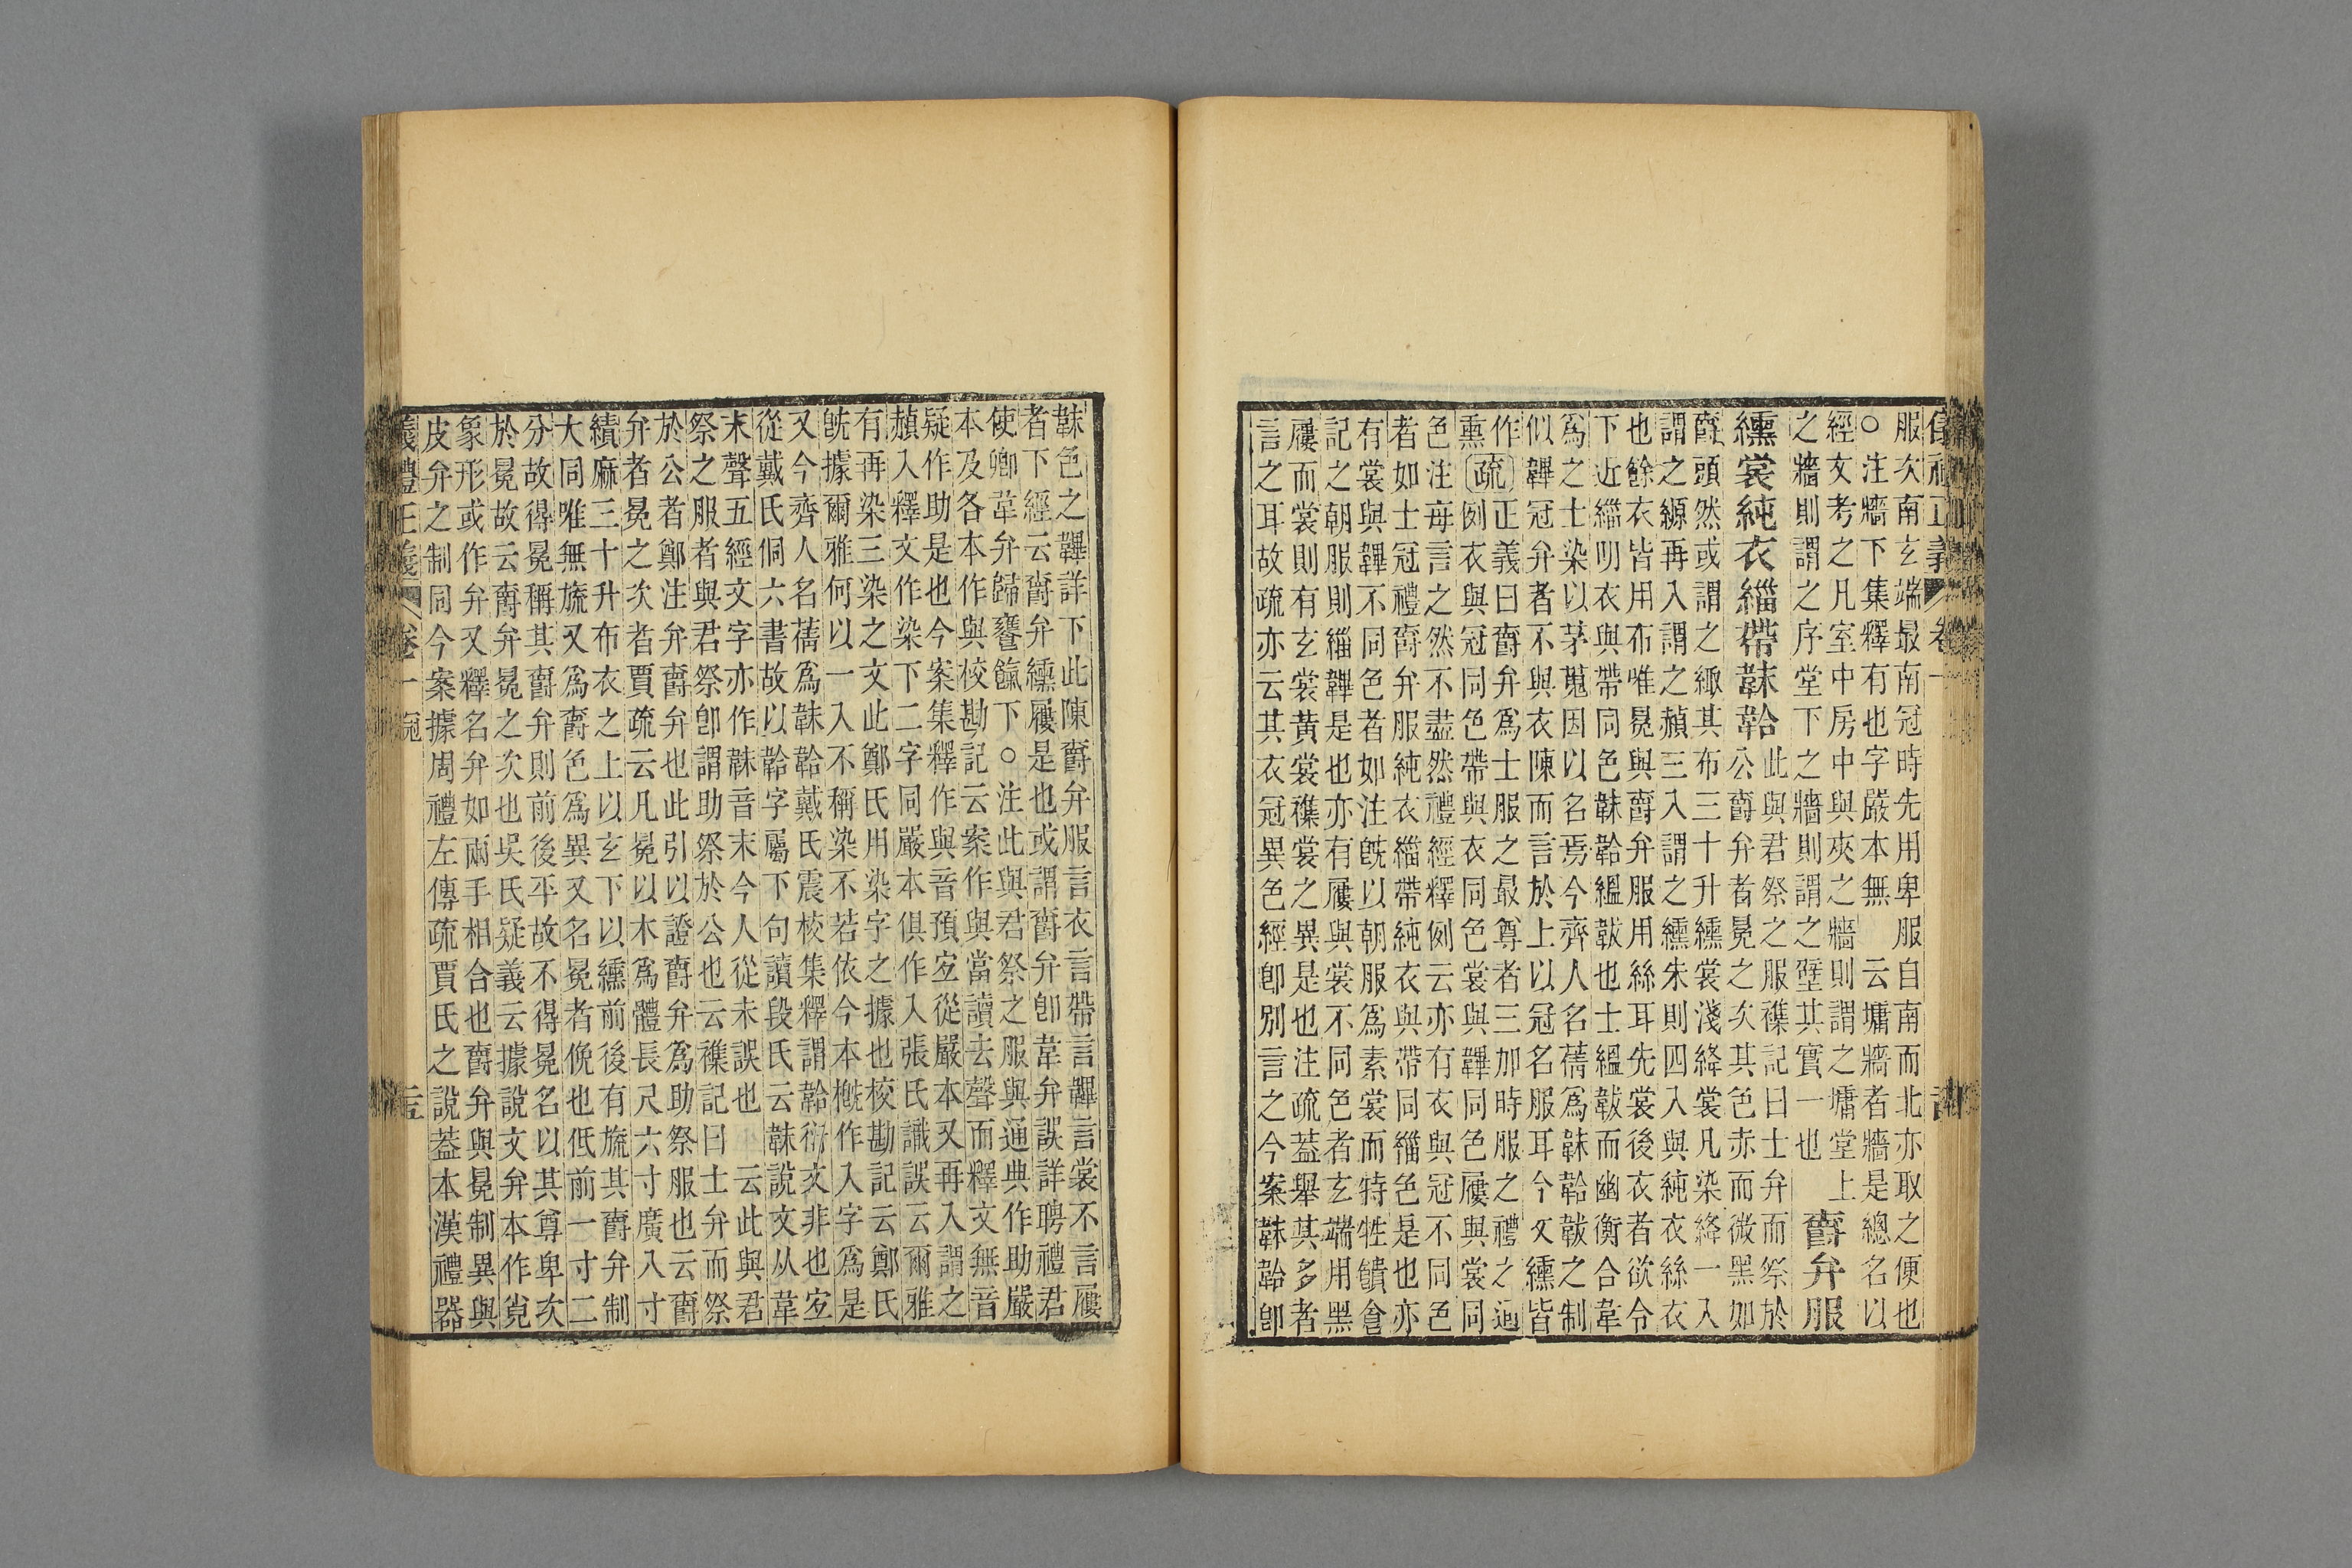 服次南玄端最南冠時先用卑服自南而北亦取之便也
○注牆下集釋有也字嚴本無　云墉牆者牆是總名以
經文考之凡室中房中與夾之牆則謂之墉堂上
之牆則謂之序堂下之牆則謂之壁其實一也　爵弁服
纁裳純衣緇帶韎韐
此與君祭之服襍記曰士弁而祭於
公爵弁者冕之次其色赤而微黑如
爵頭然或謂之緅其布三十升纁裳淺絳裳凡染絳一入
謂之縓再入謂之赬三入謂之纁朱則四入與純衣絲衣
也餘衣皆用布唯冕與爵弁服用絲耳先裳後衣者欲令
下近緇明衣與帶同色韎韐縕韍也士縕韍而幽衡合韋
爲之士染以茅蒐因以名焉今齊人名蒨爲韎韐韍之制
似韠冠弁者不與衣陳而言於上以冠名服耳今文纁皆
作
熏
疏
正義曰爵弁爲士服之最尊者三加時服之禮之通
例衣與冠同色帶與衣同色裳與韠同色屨與裳同
色注每言之然不盡然禮經釋例云亦有衣與冠不同色
者如士冠禮爵弁服純衣緇帶純衣與帶同緇色是也亦
有裳與韠不同色者如注旣以朝服爲素裳而特牲饋食
記之朝服則緇韠是也亦有屨與裳不同色者玄端用黑
屨而裳則有玄裳黃裳襍裳之異是也注疏蓋舉其多者
言之耳故疏亦云其衣冠異色經卽別言之今案韎韐卽
韎色之韠詳下此陳爵弁服言衣言帶言韠言裳不言屨
者下經云爵弁纁屨是也或謂爵弁卽韋弁誤詳聘禮君
使卿韋弁歸饔餼下○注此與君祭之服與通典作助嚴
本及各本作與校勘記云案作與當讀去聲而釋文無音
疑作助是也今案集釋作與音預宐從嚴本又再入謂之
赬入釋文作染下二字同嚴本俱作入張氏識誤云爾雅
有再染三染之文此鄭氏用染字之據也校勘記云鄭氏
旣據爾雅何以一入不稱染不若依今本槪作入字爲是
又今齊人名蒨爲韎韐戴氏震校集釋謂韐衍文非也宐
從戴氏侗六書故以韐字屬下句讀段氏云韎說文从韋
末聲五經文字亦作韎音末今人從未誤也　云此與君
祭之服者與君祭卽謂助祭於公也云襍記曰士弁而祭
於公者鄭注弁爵弁也此引以證爵弁爲助祭服也云爵
弁者冕之次者賈疏云凡冕以木爲體長尺六寸廣八寸
績麻三十升布衣之上以玄下以纁前後有旒其爵弁制
大同唯無旒又爲爵色爲異又名冕者俛也低前一寸二
分故得冕稱其爵弁則前後平故不得冕名以其尊卑次
於冕故云爵弁冕之次也吳氏疑義云據說文弁本作㝸
象形或作弁又釋名弁如兩手相合也爵弁與冕制異與
皮弁之制同今案據周禮左傳疏賈氏之說葢本漢禮器